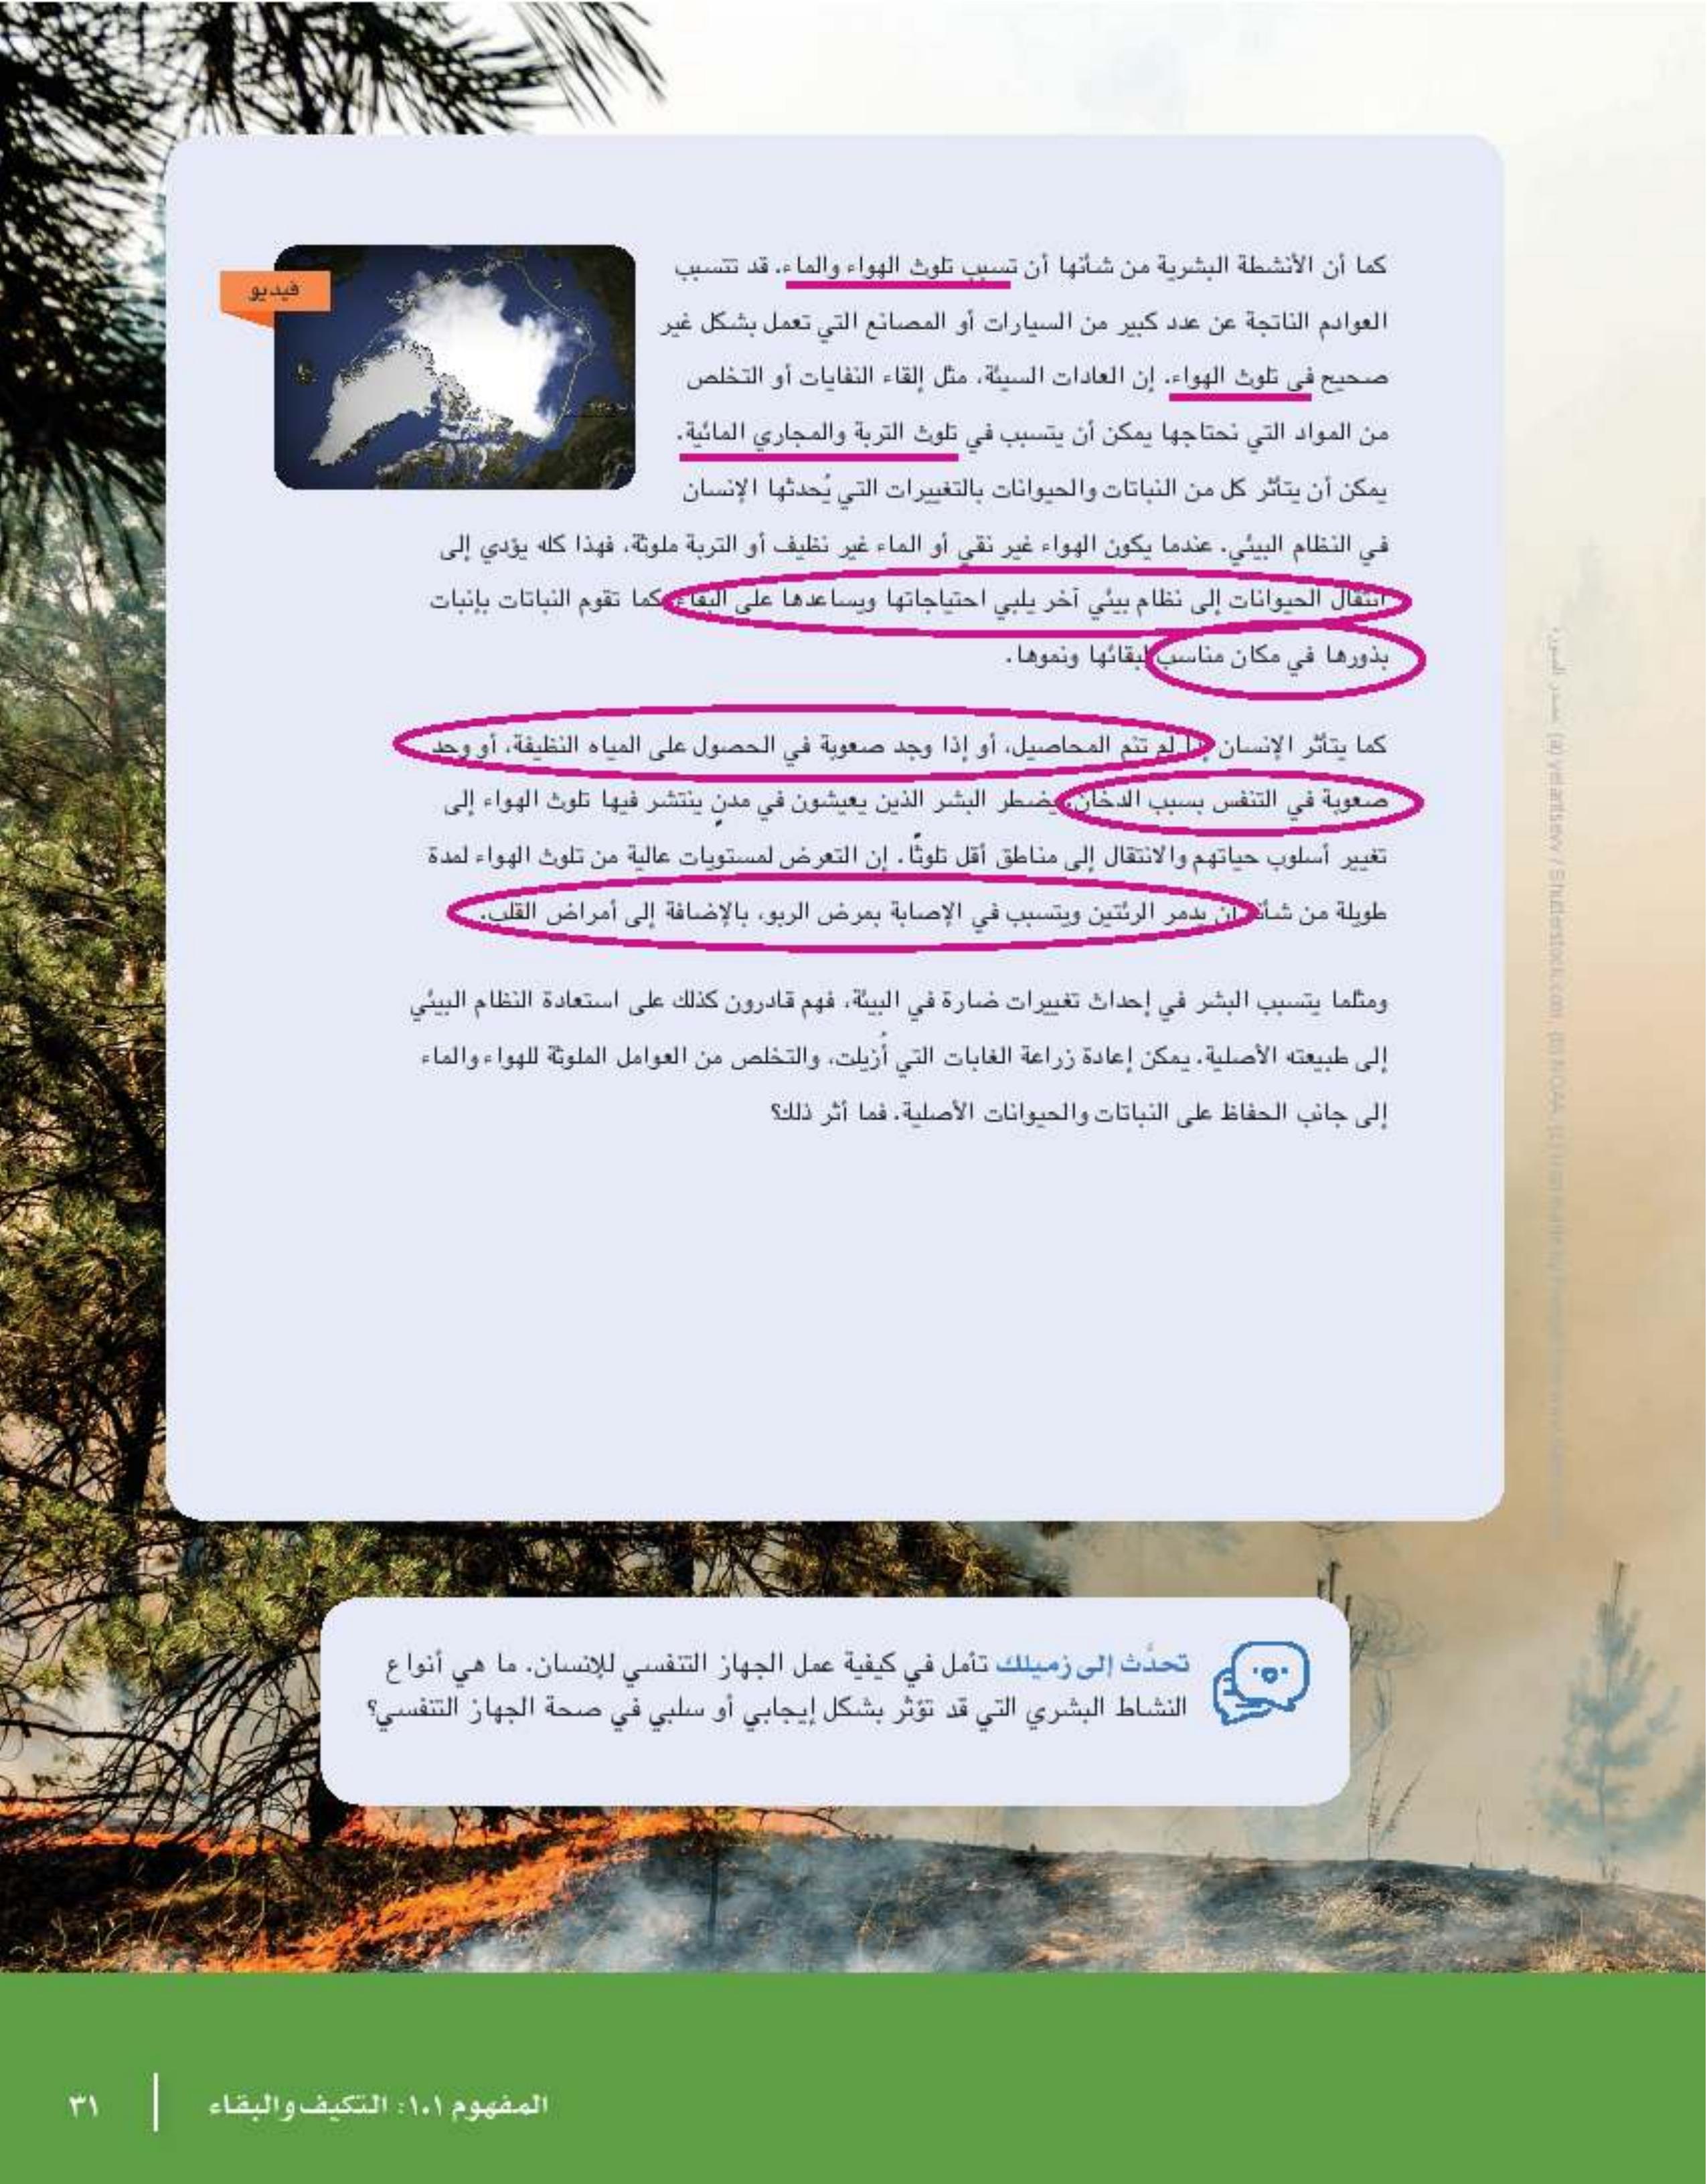 كما أن الأنشطة البشرية من شأنها أن تسبب تلوث الهواء والماء، قد تتسبب
العوادم الناتجة عن عدد كبير من السيارات أو المصانع التي تعمل بشكل غير
صحيح في تلوث الهواء، إن العادات السيئة، مثل إلقاء النفايات أو التخلص
من المواد التي نحتاجها يمكن أن يتسبب في تلوث التربة والمجاري المائية.
يمكن أن يتأثر كل من النباتات والحيوانات بالتغييرات التي يُحدثها الإنسان
فيديو
في النظام البيئي. عندما يكون الهواء غير نقي أو الماء غير نظيف أو التربة ملوثة، فهذا كله يؤدي إلى
انتقال الحيوانات إلى نظام بيئي آخر يلبي احتياجاتها ويساعدها على البقاء كما تقوم النباتات بإنبات
بذورها في مكان مناسب لبقائها ونموها.
كما يتأثر الإنسان إذا لم تنم المحاصيل، أو إذا وجد صعوبة في الحصول على المياه النظيفة، أو وجد
صعوبة في التنفس بسبب الدخان. يضطر البشر الذين يعيشون في مدنٍ ينتشر فيها تلوث الهواء إلى
تغيير أسلوب حياتهم والانتقال إلى مناطق أقل تلوثًا. إن التعرض لمستويات عالية من تلوث الهواء لمدة
طويلة من شأنه أن يدمر الرئتين ويتسبب في الإصابة بمرض الربو، بالإضافة إلى أمراض القلب.
ومثلما يتسبب البشر في إحداث تغييرات ضارة في البيئة، فهم قادرون كذلك على استعادة النظام البيئي
إلى طبيعته الأصلية. يمكن إعادة زراعة الغابات التي أُزيلت، والتخلص من العوامل الملوثة للهواء والماء
إلى جانب الحفاظ على النباتات والحيوانات الأصلية. فما أثر ذلك؟
تحدَّث إلى زميلك تأمل في كيفية عمل الجهاز التنفسي للإنسان. ما هي أنواع
النشاط البشري التي قد تؤثر بشكل إيجابي أو سلبي في صحة الجهاز التنفسي؟
المفهوم ١.١: التكيف والبقاء
٣١